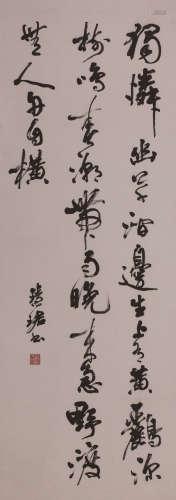 獨憐幽草澗邊生上有黄鸝深
樹鳴春潮帶雨晚来急野渡
無人舟自橫
慧珺书